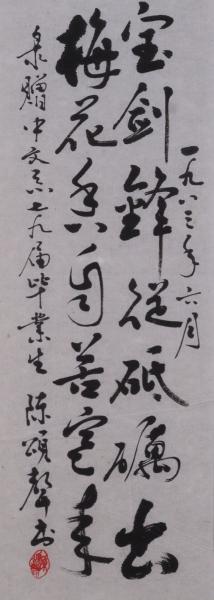 宝剑锋从砥砺出
梅花香自苦寒来
一九八三年六月
录赠中文系七九届毕业生 陈颂声书